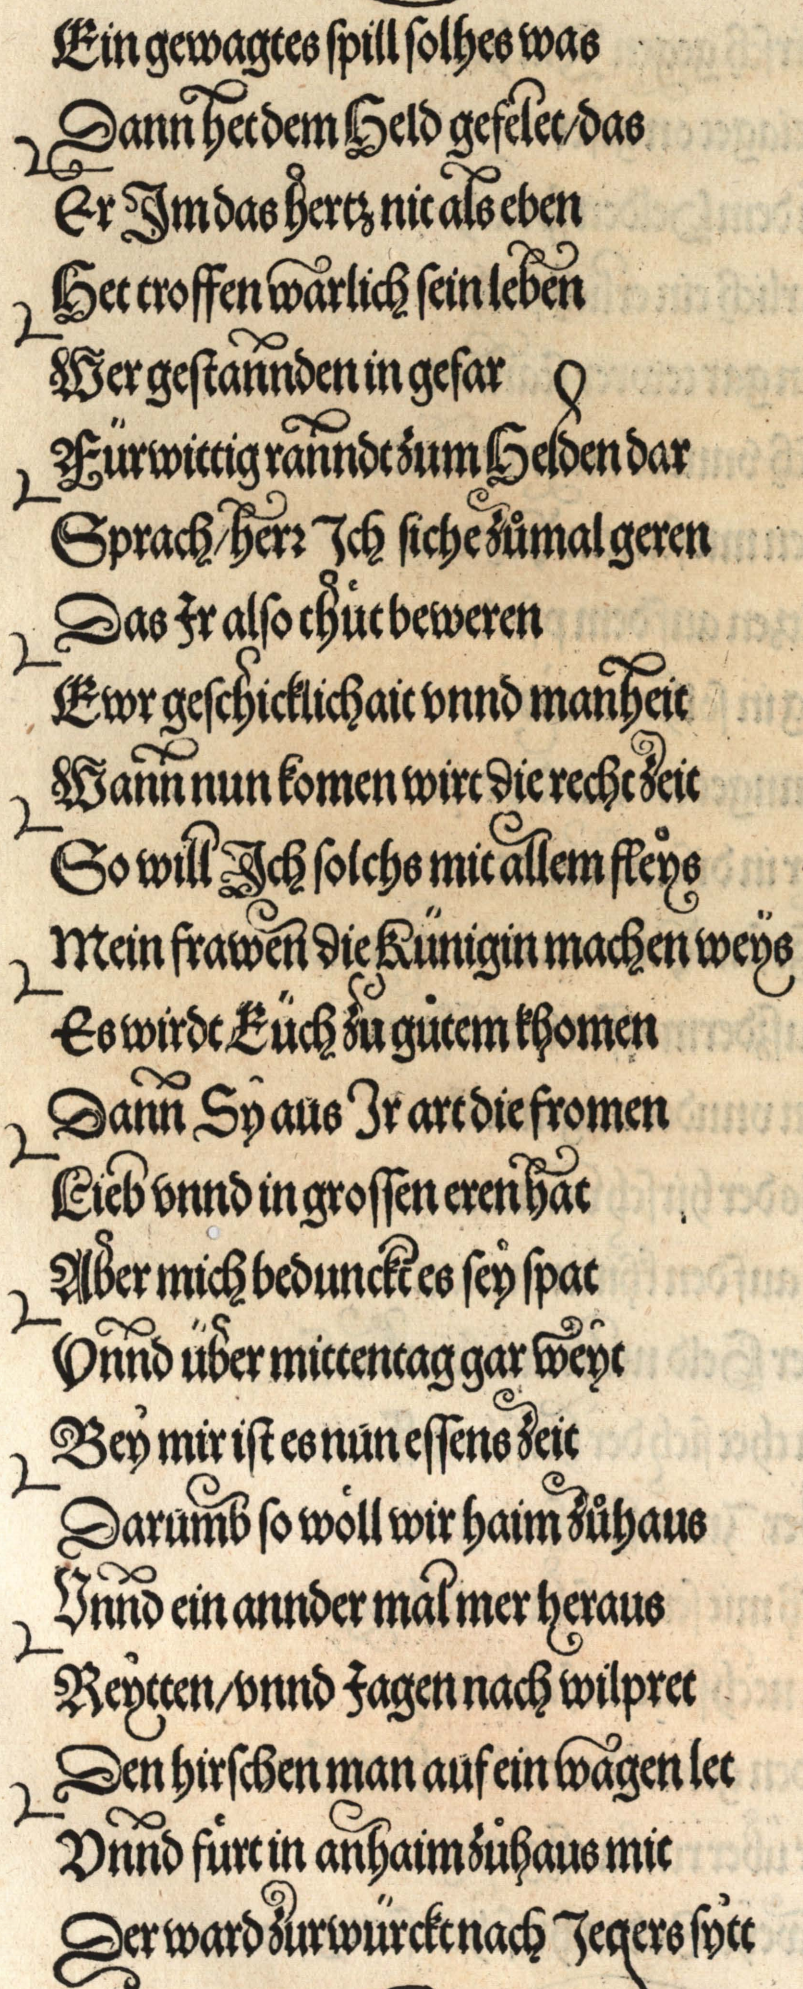 Ein gewagtes spill solhes was
Dann het dem Held gefelet/das
Er Im das hertz nit als eben
Het troffen warlich sein leben
Wer gestannden in gefar
Fürwittig ranndt zum Helden dar
Sprach/herr Ich siche zůmal geren
Das Ir also thůt beweren
Ewr geschicklichait vnnd manheit
Wann nun komen wirt die recht zeit
So will Ich solchs mit allem fleys
Mein frawen die Künigin machen weys
Es wirdt Euch zu gůtem khomen
Dann Sy aus Ir art die fromen
Lieb vnnd in grossen eren hat
Aber mich bedunckt es sey spat
Vnnd über mittentag gar weyt
Bey mir ist es nun essens zeit
Darumb so wöll wir haim zůhaus
Vnnd ein annder mal mer heraus
Reytten/vnnd Jagen nach wilpret
Den hirschen man auf ein wagen let
Vnnd fůrt in anhaim zůhaus mit
Der ward zurwürckt nach Jegers sytt